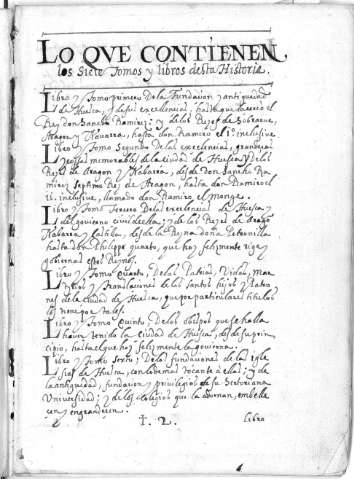 LO QVE CONTIENEN
los Siete Tomos y libros desta Historia.
Libro y Tomo primero De la Fundacion y antiguedad
de Huesca, y de sus excelencias, hasta que
Rey don Sancho Ramirez; y de los Reyes de Sobrarue,
Aragon y Nauarra, hasta don Ramiro el 1º inclusiue
Libro y Tomo Segundo De las excelencias, grandezas
y cosas memorables de la ciudad de Huesca, y de los
Reyes de Aragon y Nabarra, desde Don Sancho Ra
mirez Septimo Rey de Aragon, hasta don Ramiro el
ii. inclusiue, llamado don Ramiro el monge.
Libro y Tomo Tercero De las excelencias de Huesca y
del gouierno ciuil della; y de los Reyes de Aragon
Nabarra y Castilla, desde la Reyna doña Petronilla
hasta don Philippo quarto, que hoy felizmente rige y
gobierna estos Reynos.
Libro y Tomo Quarto, De los Patrias, Vidas, Mar
tyrios y Translaciones de los santos hijos y Patro
nes de la ciudad de Huesca, que por particulares titulos
los
Libro y Tomo Quinto, De los obispos que se halla
hauer tenido la Ciudad de Huesca, desde su prin
cipio, hasta el que hoy felizmente la gouierna.
Libro y Tomo Sexto, De las fundaciones de las Igle
sias de Huesca, con lo demas tocante a ellas; y de
la antiguedad, fundacion y priuilegios de su Sertoriana
Vniuersidad; y de los colegios que la adornan, embelle
cen y engrandecen.
† 2.
Libro